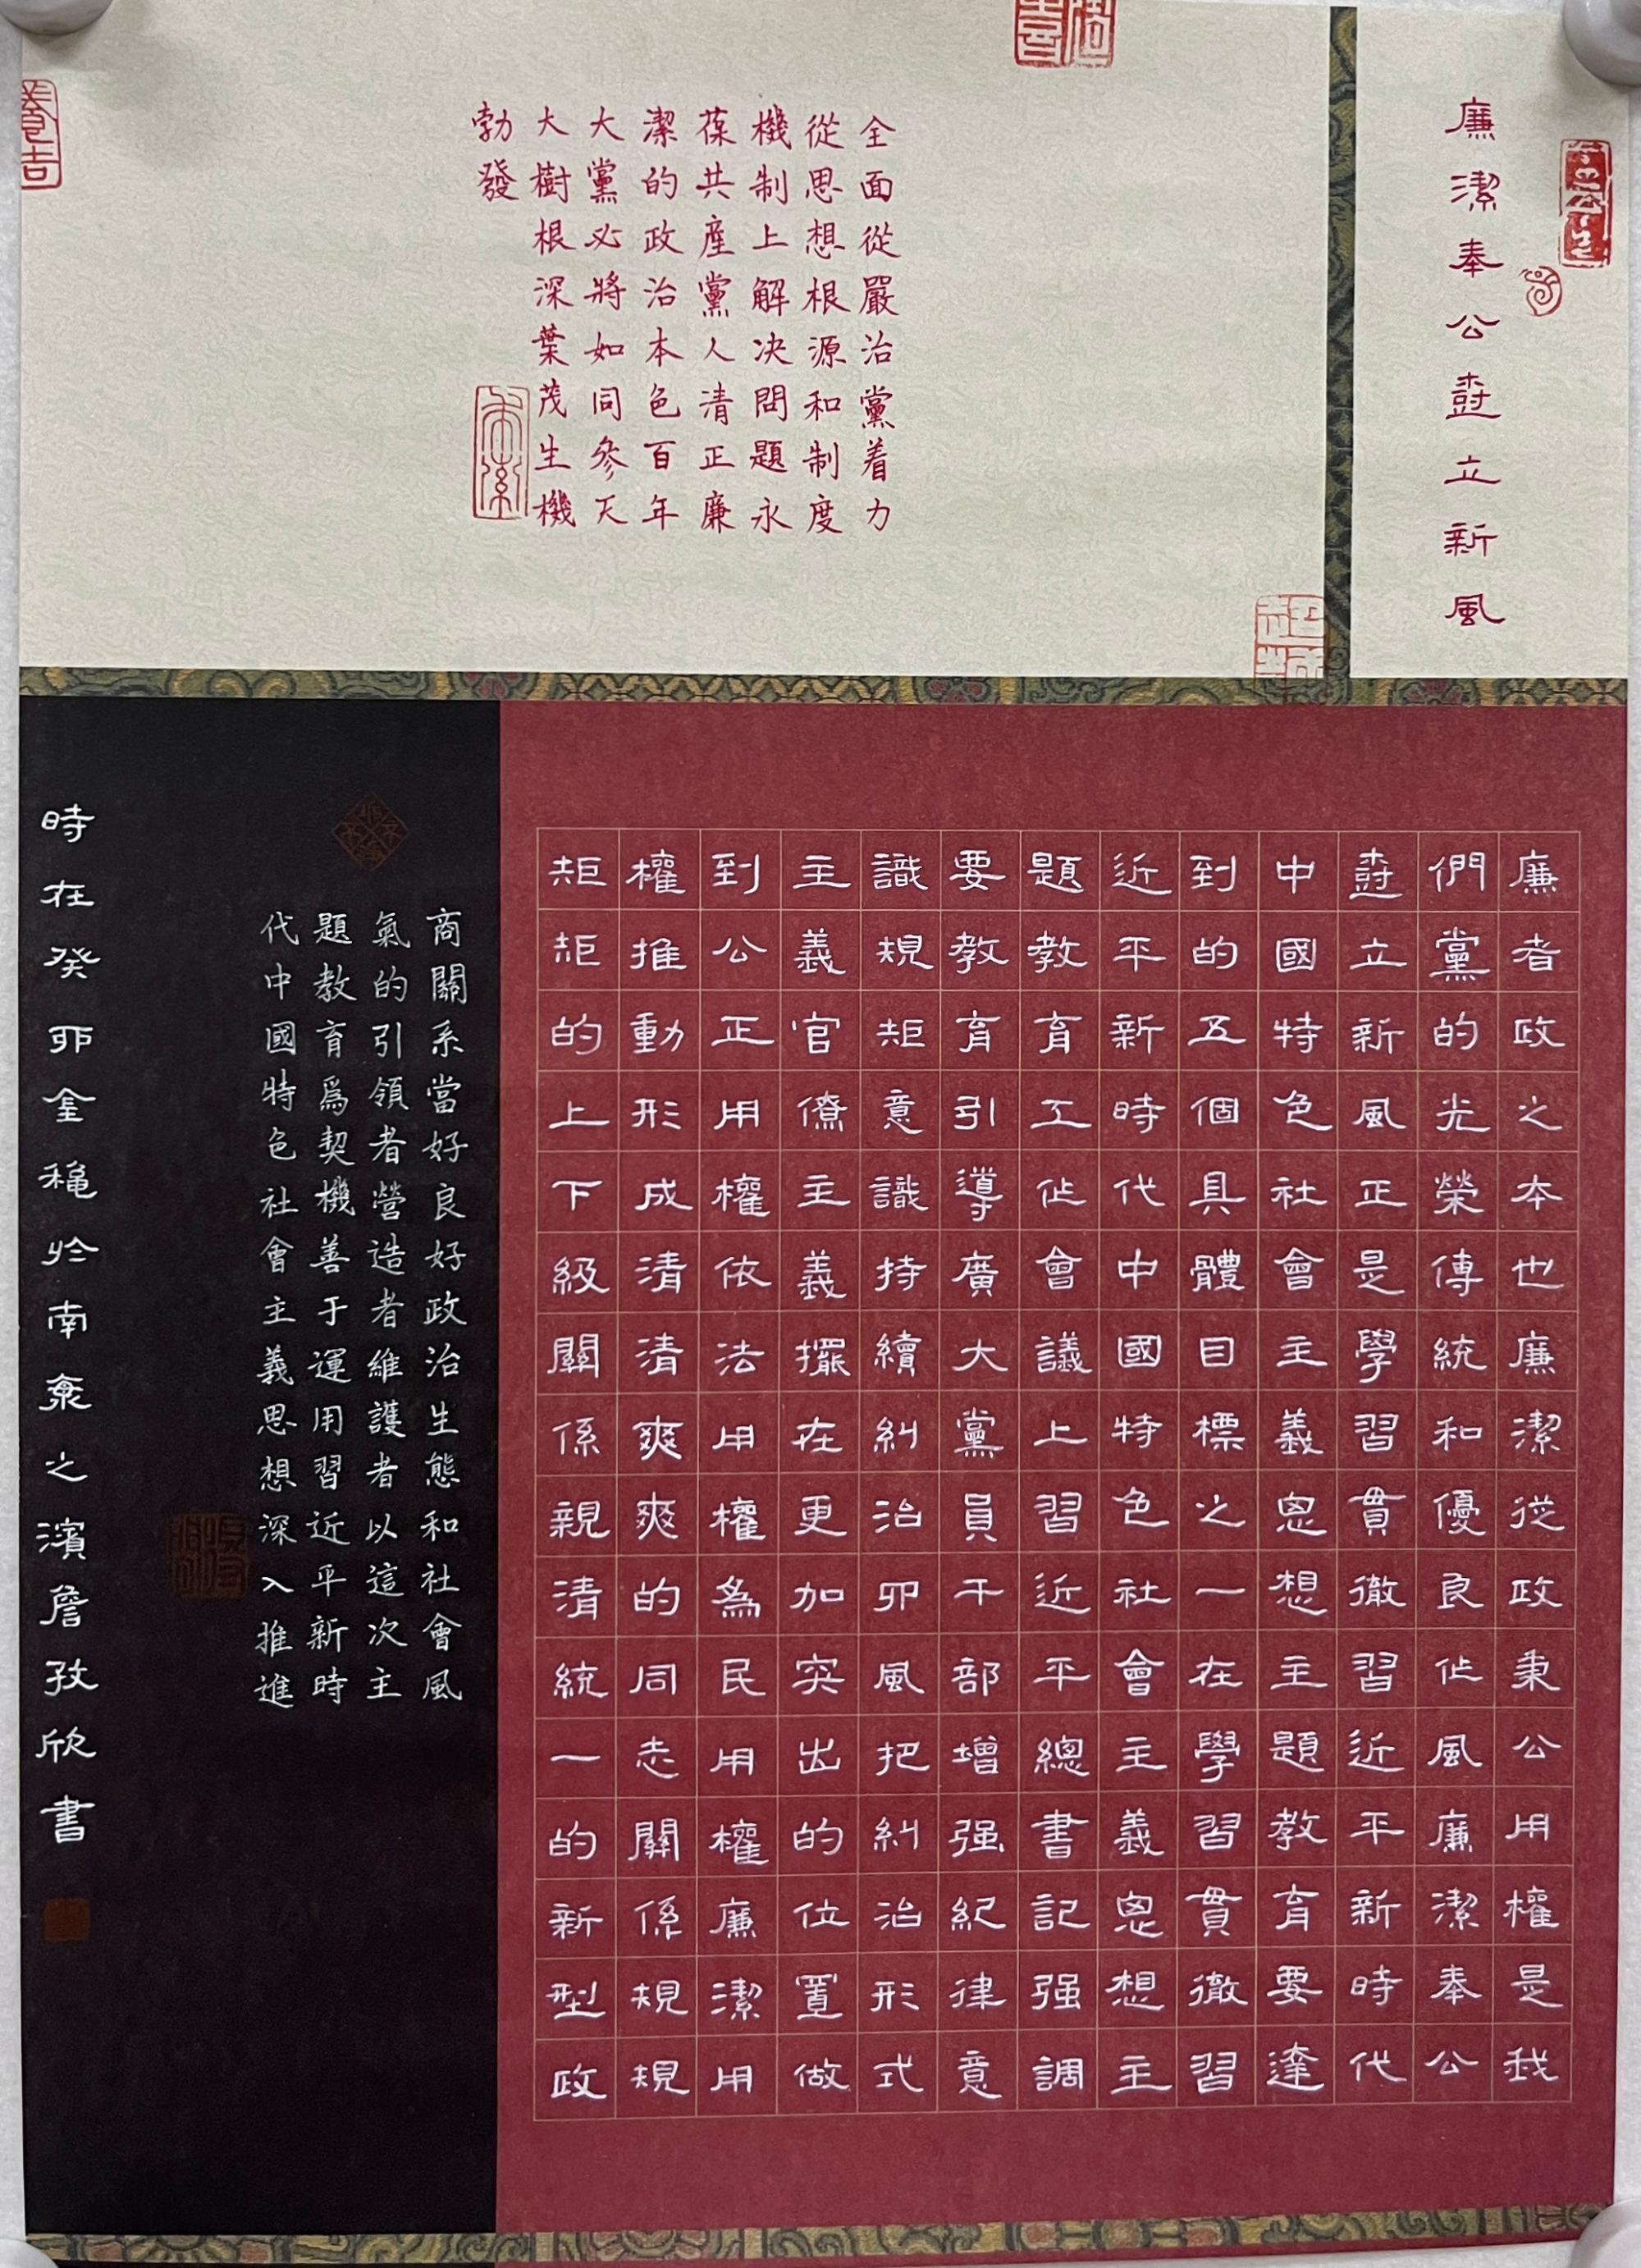 廉潔奉公樹立新風
全面從嚴治黨着力
從思想根源和制度
機制上解决問題永
葆共産黨人清正廉
潔的政治本色百年
大黨必將如同參天
大樹根深葉茂生機
勃發
廉者政之本也廉潔從政秉公用權是我
們黨的光榮傳統和優良作風廉潔奉公
樹立新風正是學習貫徹習近平新時代
中國特色社會主義思想主題教育要達
到的五個具體目標之一在學習貫徹習
近平新時代中國特色社會主義思想主
題教育工作會議上習近平總書記强調
要教育引導廣大黨員干部增强紀律意
識規矩意識持續糾治四風把糾治形式
主義官僚主義擺在更加突出的位置做
到公正用權依法用權為民用權廉潔用
權推動形成清清爽爽的同志關係規規
矩矩的上下級關係親清統一的新型政
商關系當好良好政治生態和社會風
氣的引領者營造者維護者以這次主
題教育爲契機善于運用習近平新時
代中國特色社會主義思想深入推進
時在癸卯金穐於南粵之濱詹孜欣書